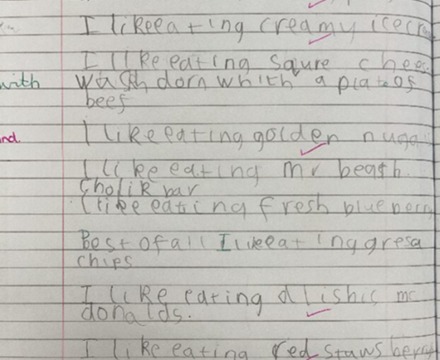 I like eating creamy icecr
I like eating squre chees
with wash dorn which a plate of
beef
I like eating golden nugg
nd
I like eating mr beasth
cholik bar
I like eating fresh blueberr
Best of all I like eating gresa
chips
I like eating dlishis mc
donalds.
I like eating red staws berr